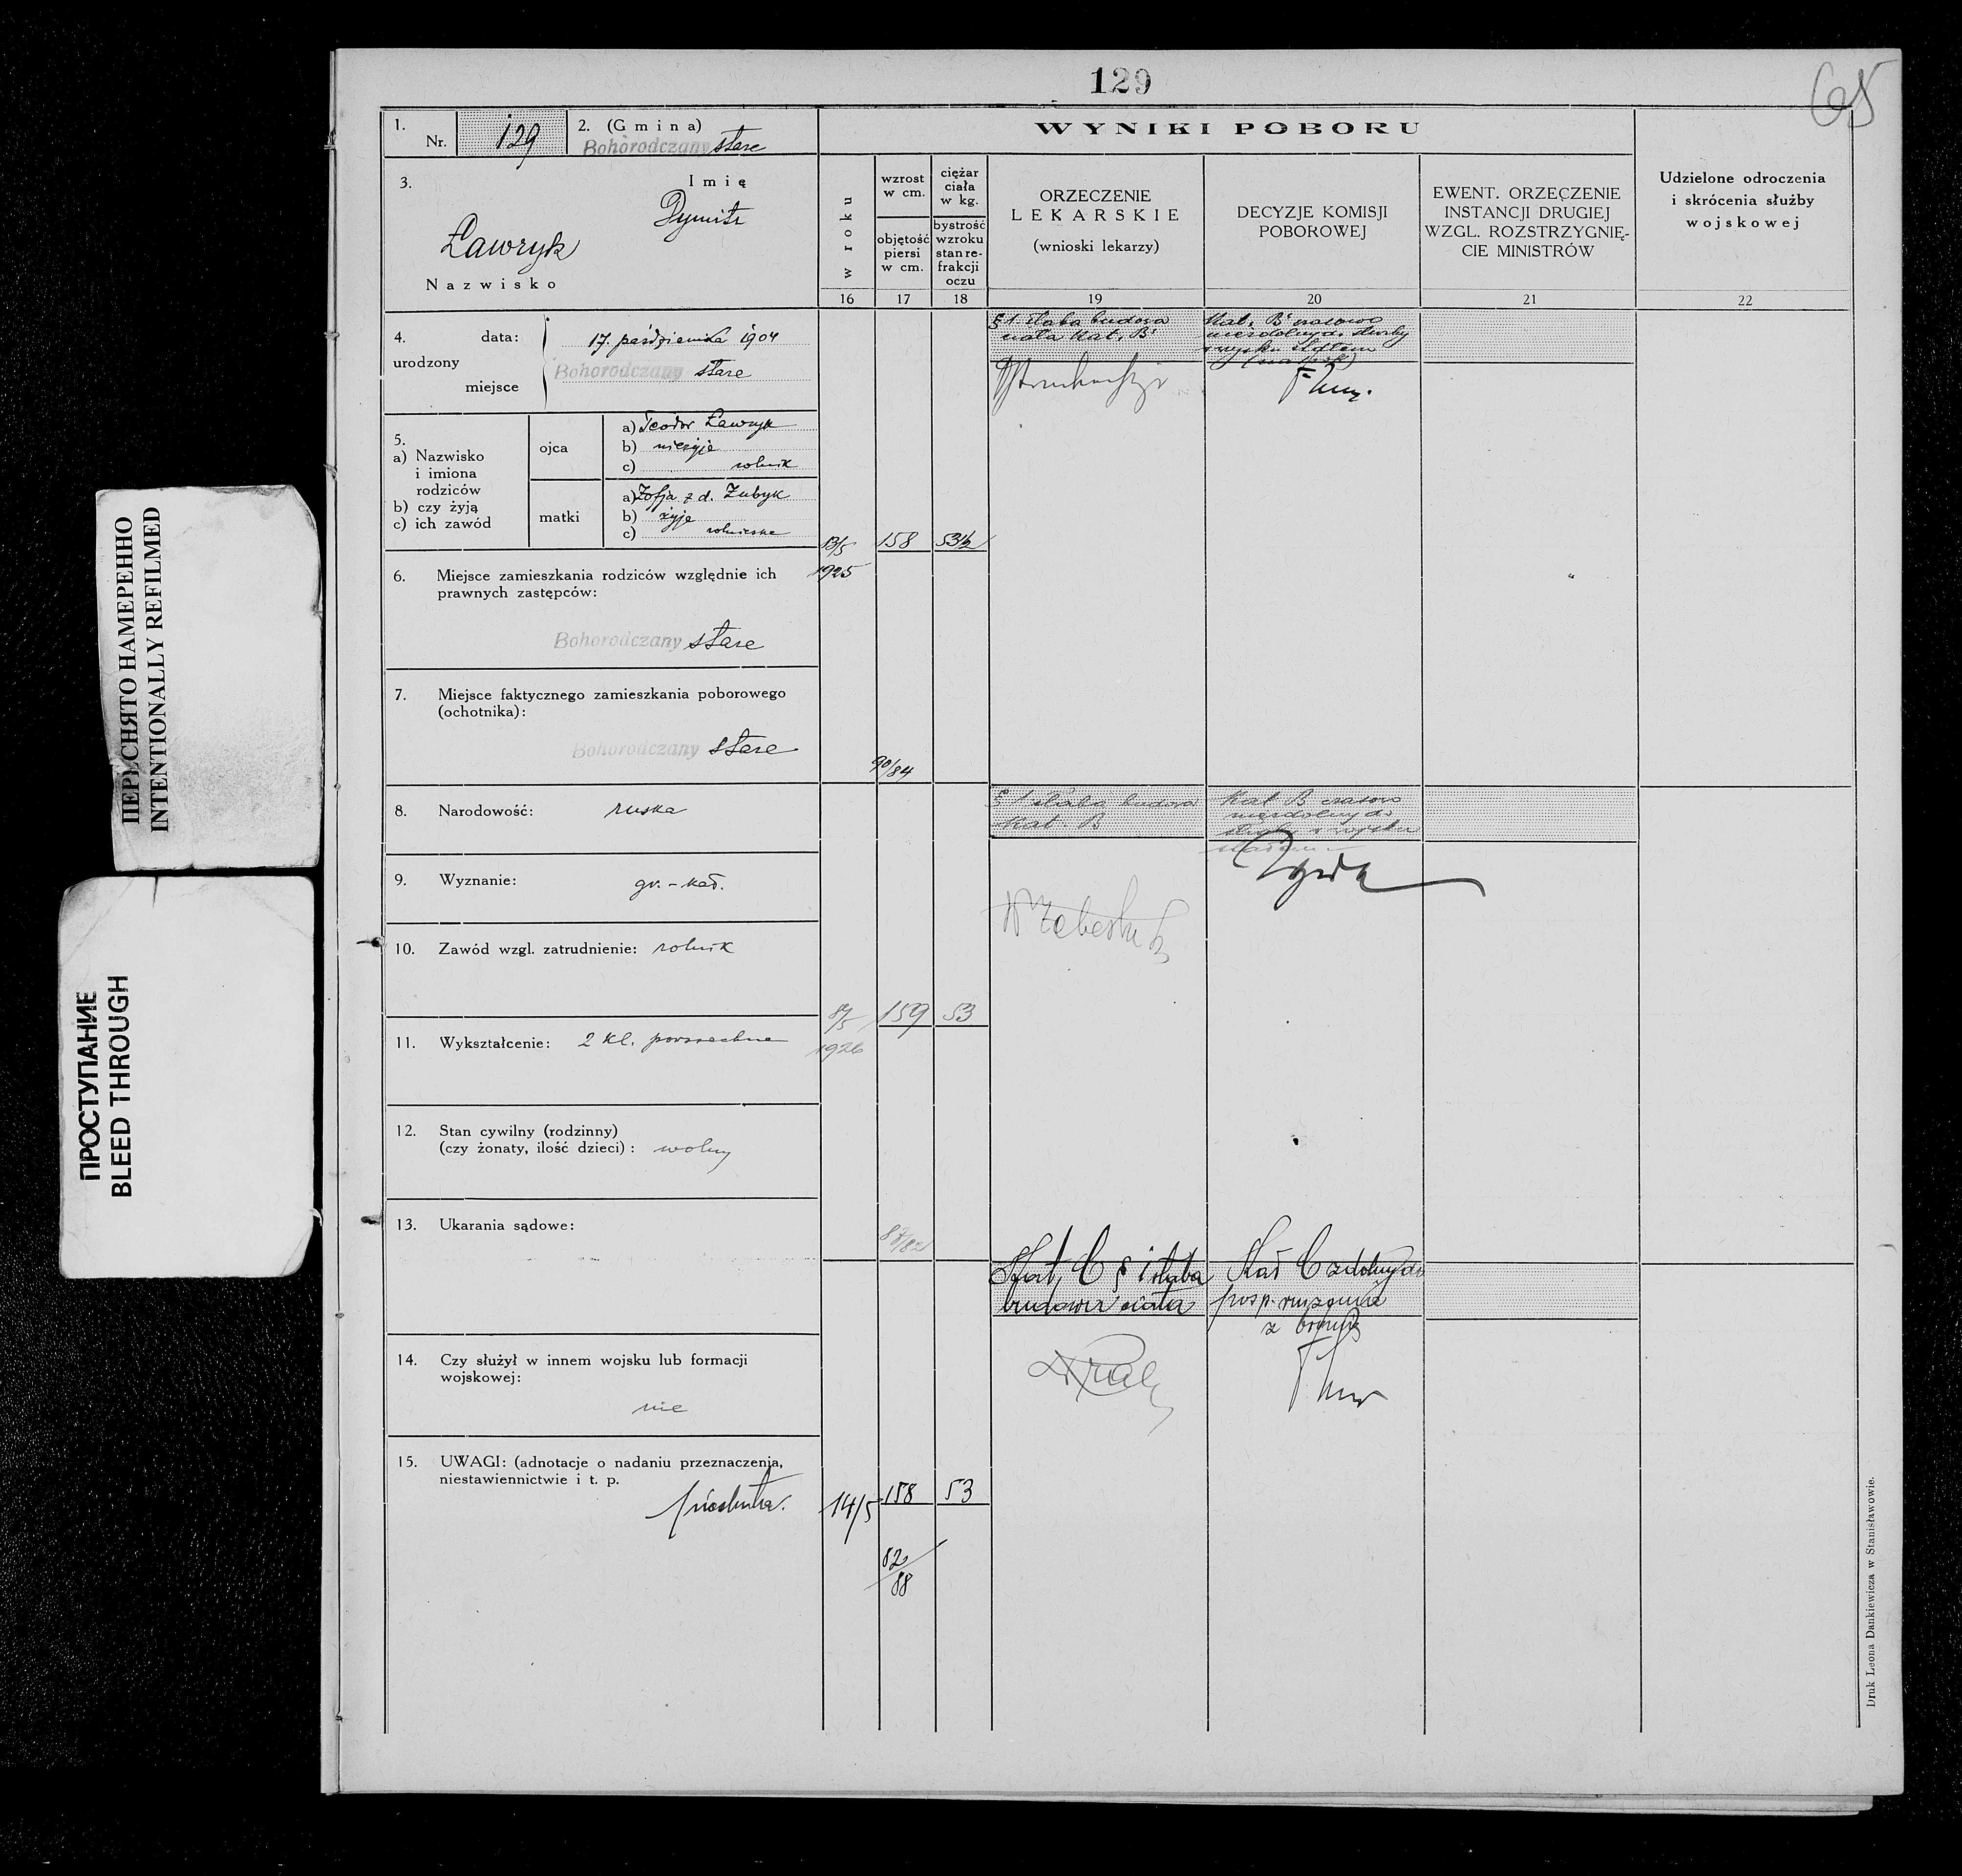 129
65
1.
Nr. 129
2. (Gmina)
Bohorodczany stare
3.
Imię
Dymitr
Ławryk
Nazwisko
WYNIKI POBORU
w roku
wzrost
w cm.
objętość
piersi
w cm.
ciężar
ciała
w kg.
bystrość
wzroku
stan re-
frakcji
oczu
ORZECZENIE
LEKARSKIE
(wnioski lekarzy)
DECYZJE KOMISJI
POBOROWEJ
EWENT. ORZECZENIE
INSTANCJI DRUGIEJ
WZGL. ROZSTRZYGNIĘ-
CIE MINISTRÓW
Udzielone odroczenia
i skrócenia służby
wojskowej
16 17 18 19 20 21 22
4. data: 17. października 1904
urodzony
miejsce Bohorodczany stare
5.
a) Nazwisko
i imiona
rodziców
b) czy żyją
c) ich zawód
ojca
a) Teodor Ławryk
b) nieżyje
c) rolnik
matki
a) Zofja z d. Zubyk
b) żyje
c) rolniczka
6. Miejsce zamieszkania rodziców względnie ich
prawnych zastępców:
Bohorodczany stare
7. Miejsce faktycznego zamieszkania poborowego
(ochotnika):
Bohorodczany stare
8. Narodowość: ruska
9. Wyznanie: gr.-kat.
10. Zawód wzgl. zatrudnienie: rolnik
11. Wykształcenie: 2 kl. powszechne
12. Stan cywilny (rodzinny)
(czy żonaty, ilość dzieci): wolny
13. Ukarania sądowe:
14. Czy służył w innem wojsku lub formacji
wojskowej:
nie
15. UWAGI: (adnotacje o nadaniu przeznaczenia,
niestawiennictwie i t. p.
piechota.
13/5
1925
158
53½
90/84
§ 1. słaba budowa
ciała Kat. B
Kat. B czasowo
niezdolny do służby
1926
159
53
§ 1 słaba budowa
Kat. B
Kat B czasowo
niezdolny do
służby w wojsku
stałem
14/5
158
53
82/88
Kat. C § 1 słaba
budowa ciała
Kat C zdolny do
posp. ruszenia
z bronią
Druk Leona Dankiewicza w Stanisławowie.
ПЕРЕСНЯТО НАМЕРЕННО
INTENTIONALLY REFILMED
ПРОСТУПАНИЕ
BLEED THROUGH